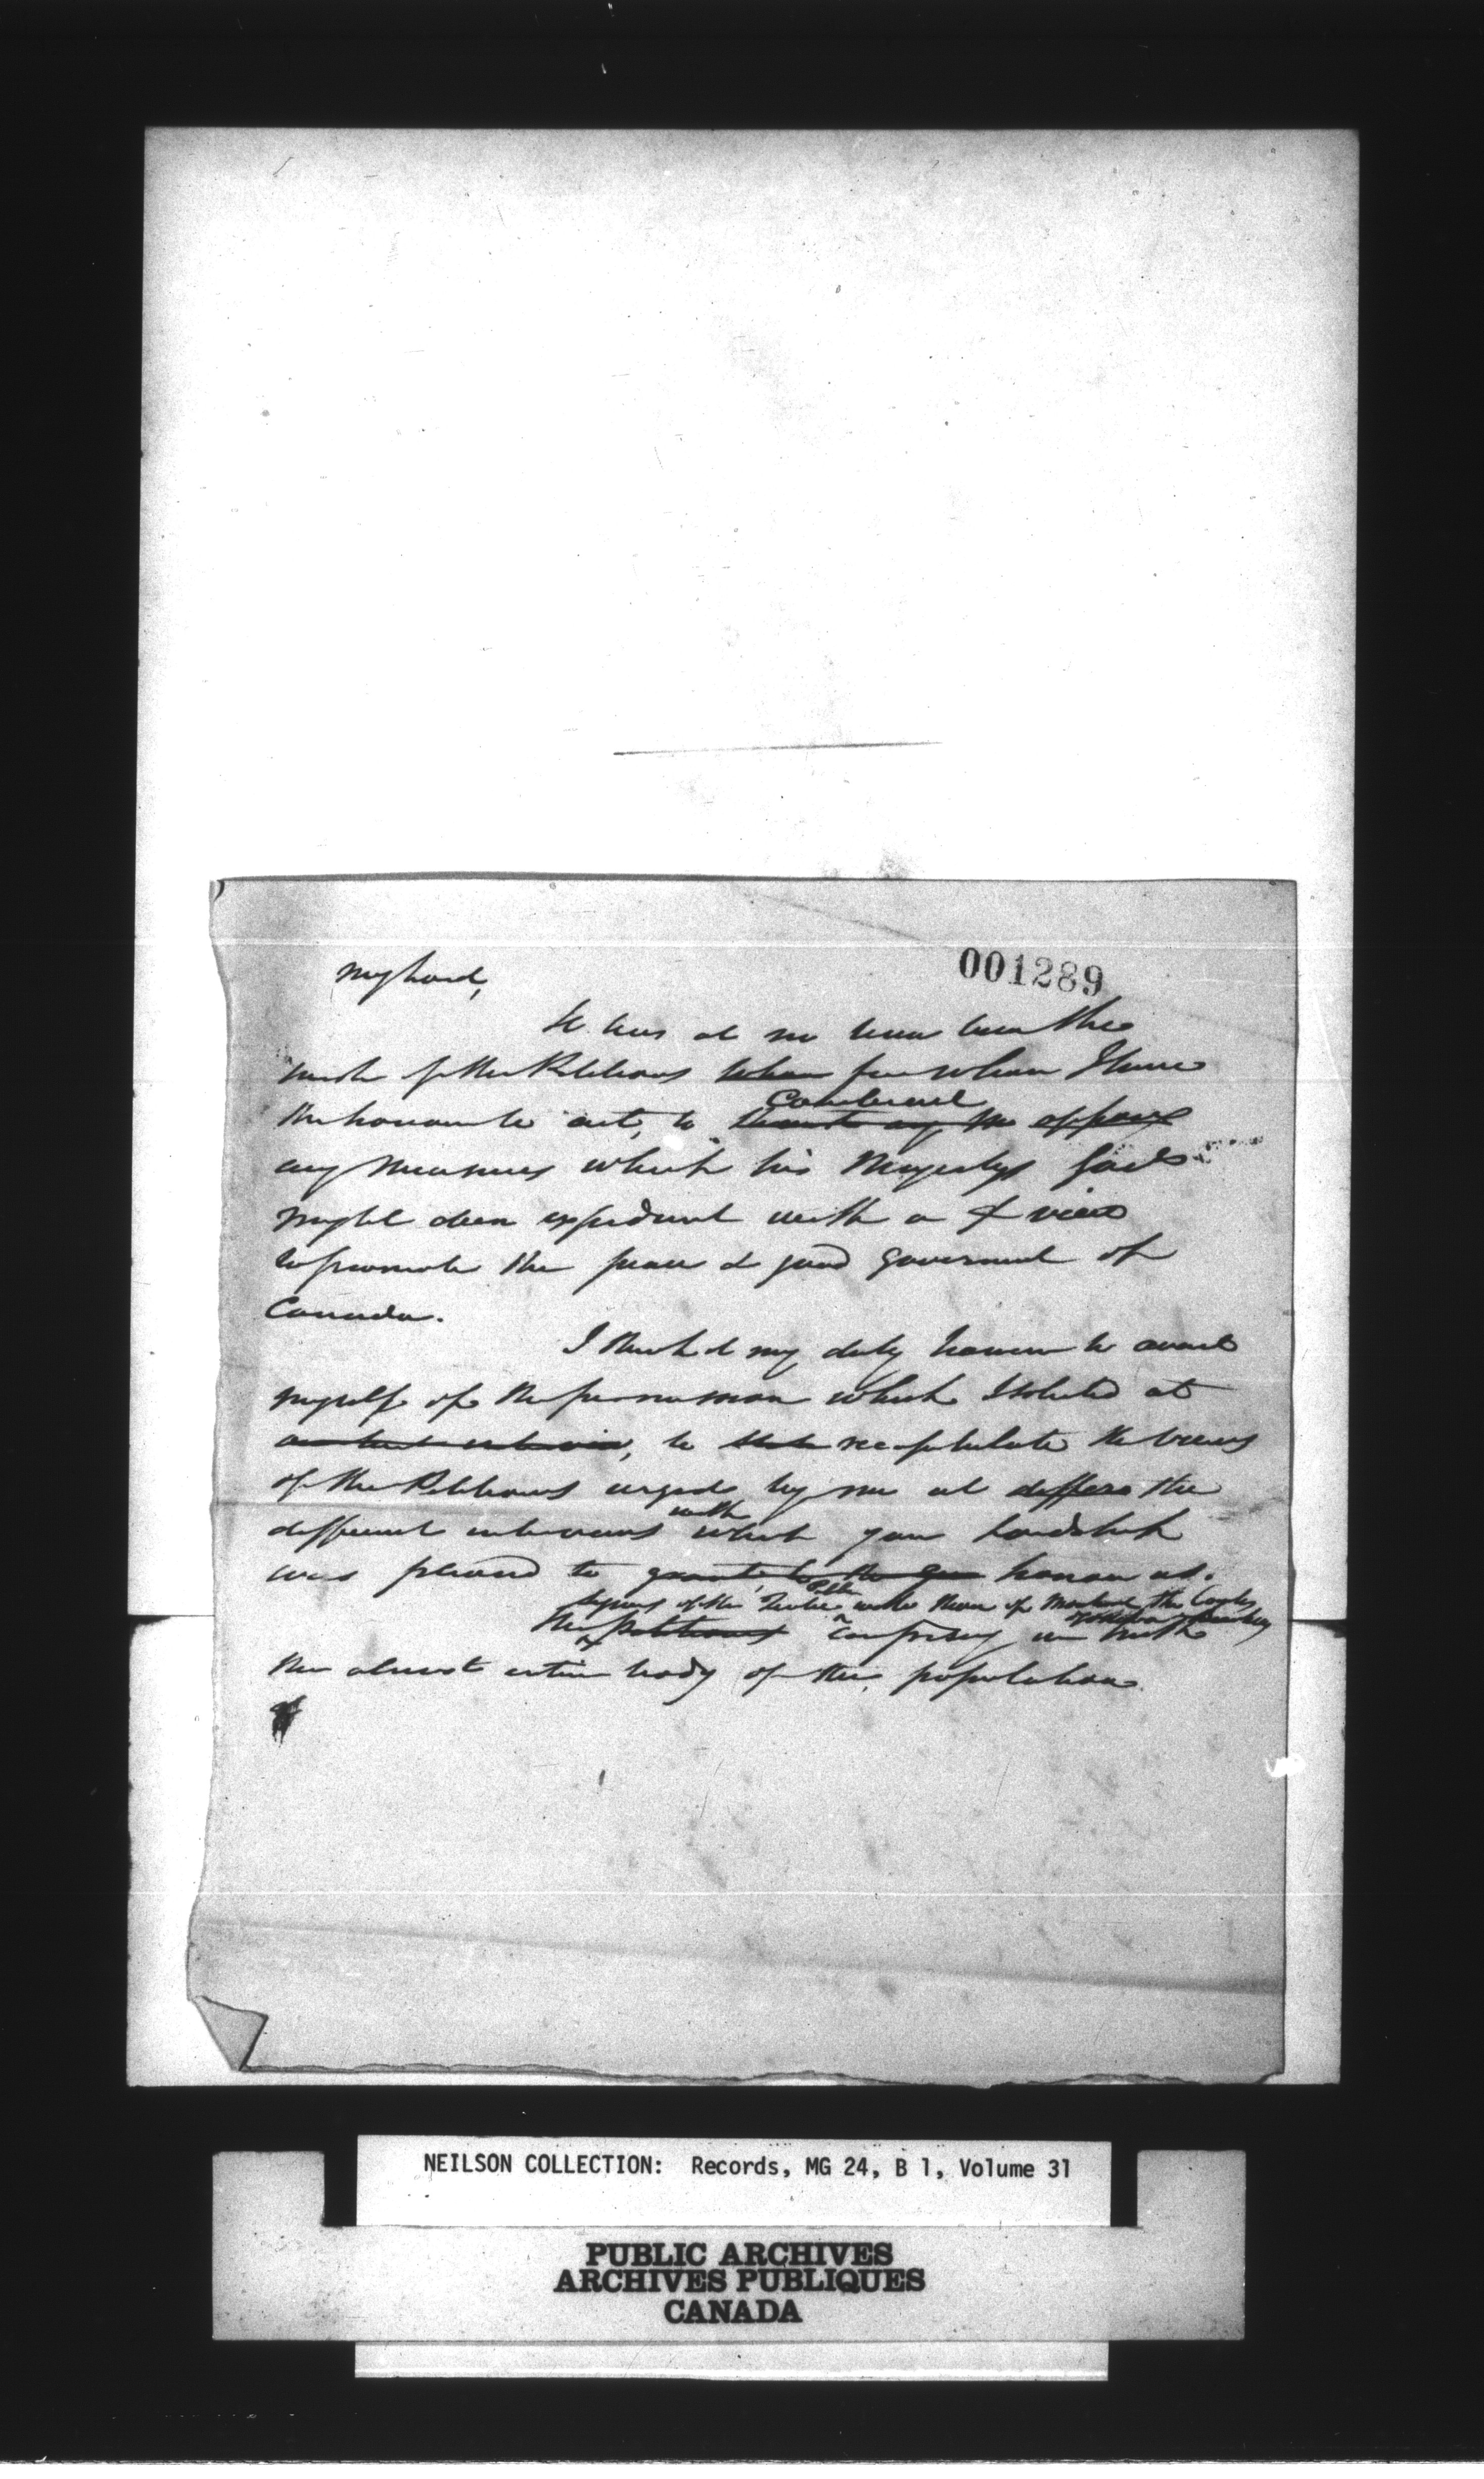 001289
My Lord,
It has at no time been the
wish of the Petitioners for whom I have
the honour to act, to
Controvert
any measures which his Majestys Govt
might deem expedient with a view
to promote the peace & good government of
Canada.
I think it my duty however to avail
myself of the permission which I solicited at
to recapitulate the views
of the Petitioners urged by me at the
with
different interviews which your Lordship
was pleased to honour us.
signers of the Quebec Petn of Montreal, the
The Petitioners comprising in truth
the almost entire body of the population
NEILSON COLLECTION: Records, MG 24, B 1, Volume 31
PUBLIC ARCHIVES
ARCHIVES PUBLIQUES
CANADA